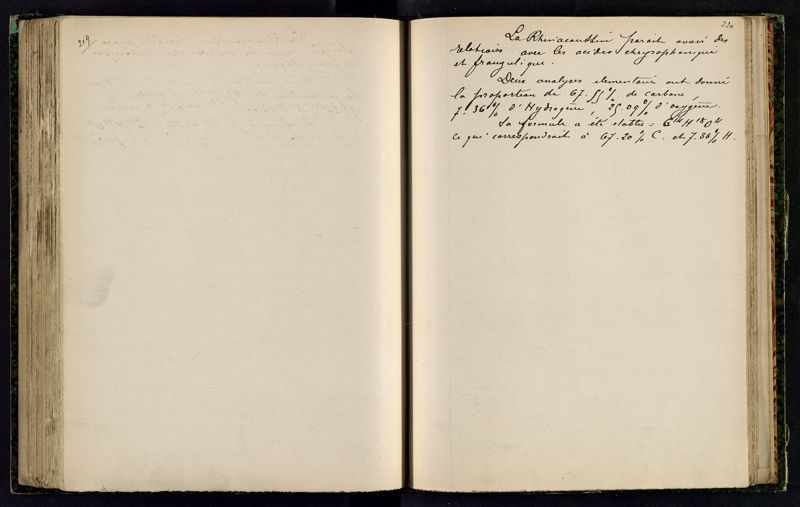 219
220
La Rhinacanthin parait avoir des
relations avec les acides chrysophanique
et frangulique.
Deux analyses elementaires ont donné
la proportion de 67.55% de carbone,
7.36% d'Hydrogène, 25.09% d'oxygène.
Sa formule a été etablie = C14 H18 O4
ce qui correspondrait à 67.20% C. et 7.36% H.